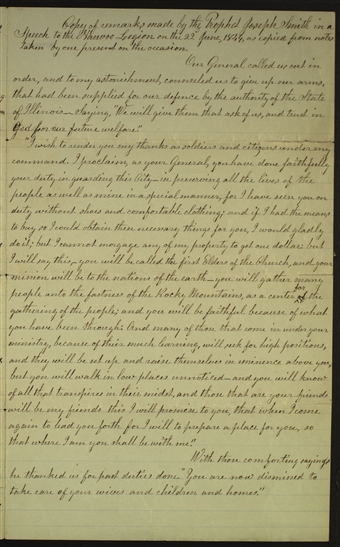 Copy of remarks made by the Prophet Joseph Smith in a
Speech to the Nauvoo Legion on the 22nd June, 1844, as copied from notes
taken by one present on the occasion.
Our General called us out in
order, and to my astonishment, counseled us to give up our arms,
that had been supplied for our defence by the authority of the State
of Illinois— Saying, "We will give them that ask of us, and trust in
God for our future welfare."
I wish to render you my thanks as soldiers and citizens under my
command. I proclaim, as your General, you have done faithfully
your duty in guarding this City— in preserving all the lives of the
people as well as mine in a special manner, for I have seen you on
duty without shoes and comfortable clothing; and if I had the means
to buy or I could obtain these necessary things for you, I would gladly
do it; but I cannot morgage any of my property to get one dollar: but
I will say this— you will be called the first Elders of the Church, and your
mission will be to the nations of the earth— you will gather many
people into the fastness of the Rocky Mountains as a center for the
gathering of the people; and you will be faithful because of what
you have been through: And many of those that come in under your
ministry, because of their much learning, will seek for high positions,
and they will be set up and raise themselves in eminence above you,
but you will walk in low places unnoticed— and you will know
of all that transpires in their midst, and those that are your friends
will be my friends this I will promise to you, that when I come
again to lead you forth for I will to prepare a place for you, so
that where I am you shall be with me."
With those comforting sayings
he thanked us for past duties done. "You are now dismissed to
take care of your wives and children and homes."